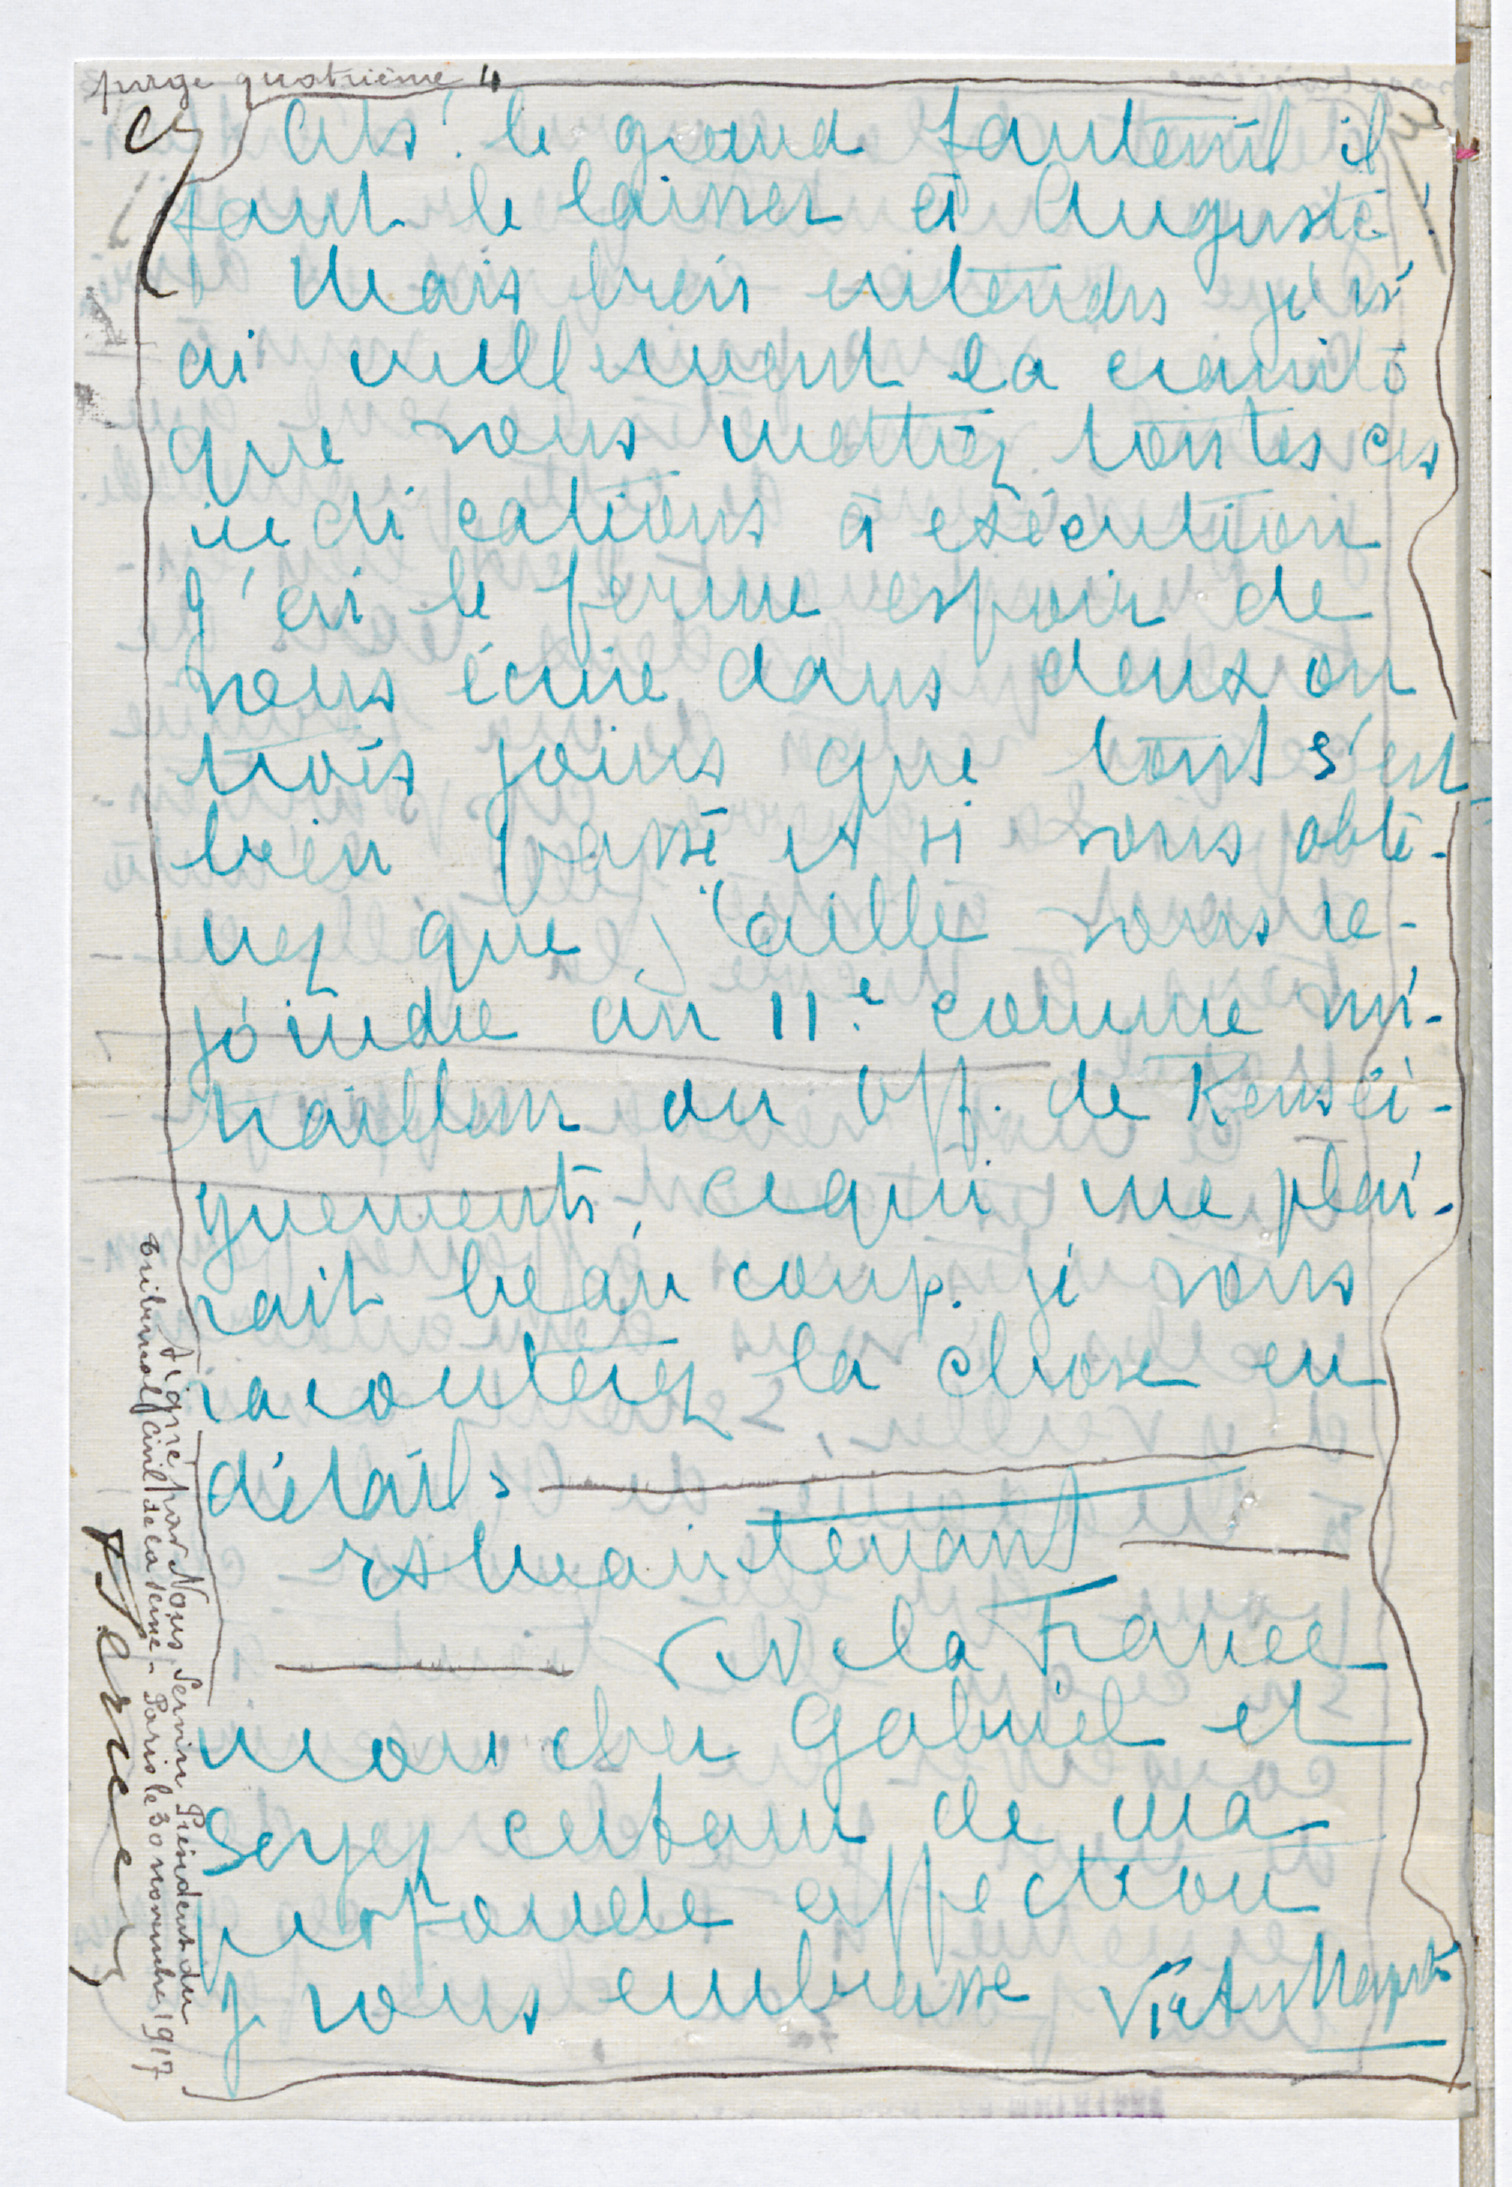 page quatrième 4
Ah! le grand fauteuil il
faut le laisser à Auguste!
Mais bien entendu je n'
ai nullement la crainte
que vous mettiez toutes ces
indications à exécution
J'ai le ferme espoir de
vous écrire dans deux ou
trois jours que tout s'est
bien passé et si vous obte-
nez que j'aille vous re-
joindre au 11e comme mi-
trailleur ou Off. de Rensei-
gnements, ce qui me plai-
rait beaucoup. je vous
raconterez la chose en
détails
et Maintenant
Vive la France
mon cher Gabriel et
Soyez certain de ma
profonde affection
je vous embrasse Victor
Signé par Nous Servin Président du
tribunal civil de la Seine - Paris le 30 novembre 1917
Servin